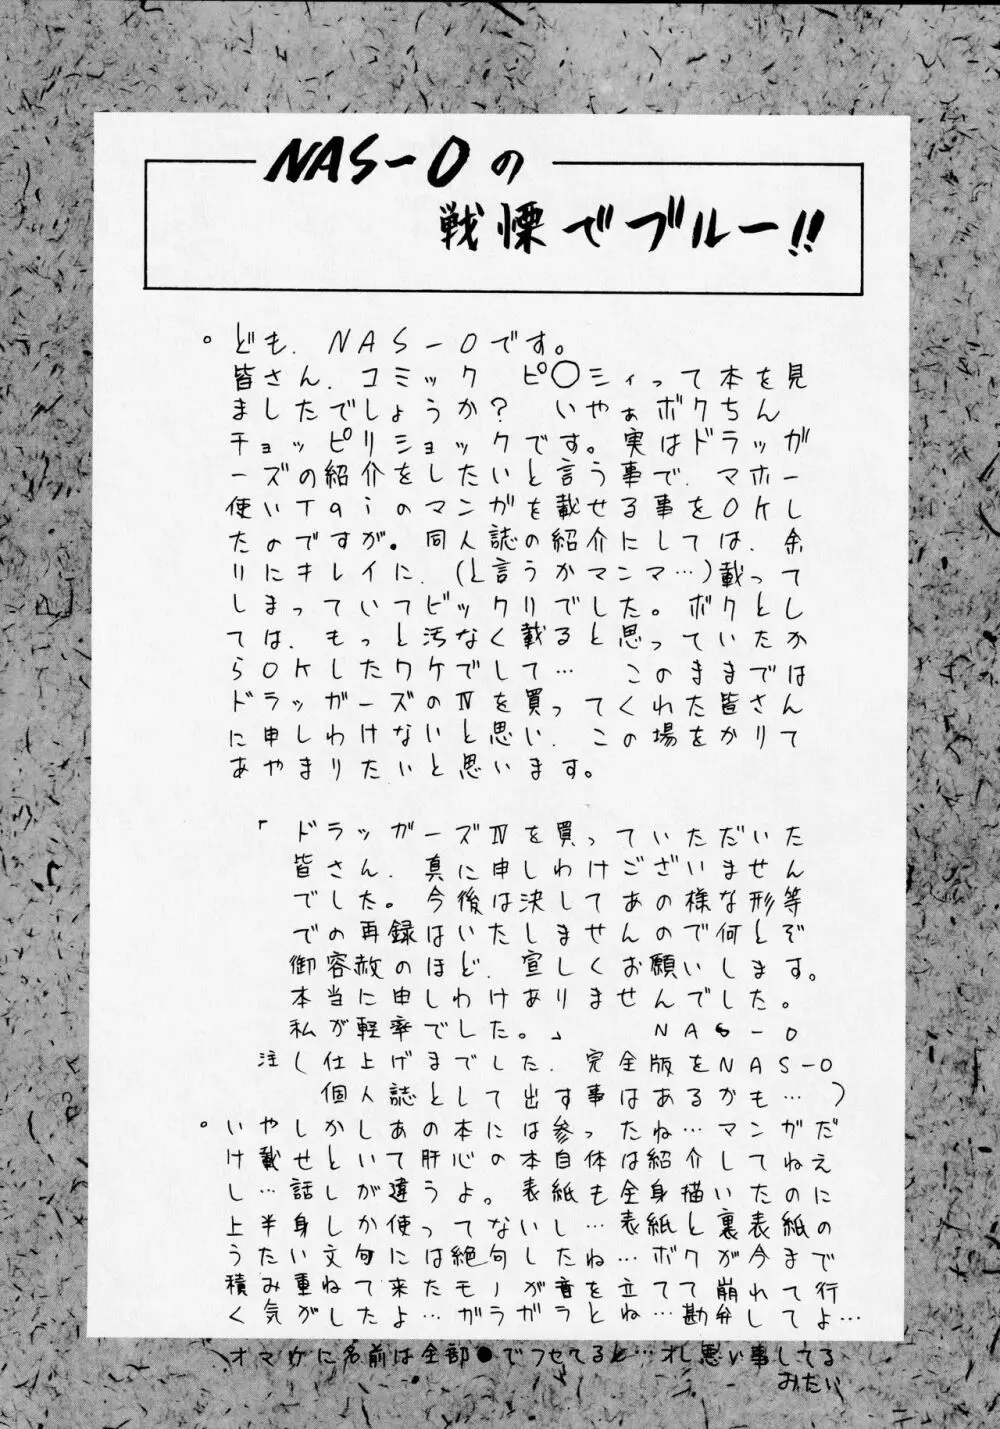 NAS-Oの
戦慄でブルー!!
。ども、NAS-Oです。
皆さん、コミック ピ○シィって本を見
ましたでしょうか? いやぁボクちん
チョッピリショックです。実はドラッガ
ーズの紹介をしたいと言う事で、マホー
使いTaiのマンガを載せる事をOKし
たのですが。同人誌の紹介にしては、余
りにキレイに、(と言うかマンマ…)載って
しまっていてビックリでした。ボクとし
ては、もっと汚なく載ると思っていたか
らOKしたワケでして… このままでは
ドラッガーズのⅣを買ってくれた皆さん
に申しわけないと思い、この場をかりて
あやまりたいと思います。
「ドラッガーズⅣを買っていただいた
皆さん、真に申しわけございません
でした。今後は決してあの様な形等
での再録はいたしませんので何とぞ
御容赦のほど、宜しくお願いします。
本当に申しわけありませんでした。
私が軽率でした。」 NAS-O
注(仕上げまでした、完全版をNAS-O
個人誌として出す事はあるかも…)
。いやしかしあの本には参ったね…マンガだ
け載せといて肝心の本自体は紹介してねえ
し…話しが違うよ。表紙も全身描いたのに
上半身しか使ってないし…表紙と裏表紙の
うたい文句には絶句したね…ボクが今まで
積み重ねて来たモノが音を立てて崩れて行
く気がしたよ…ガラガラとね…勘弁してよ…
オマケに名前は全部●でフセてると…オレ悪い事してる
みたい